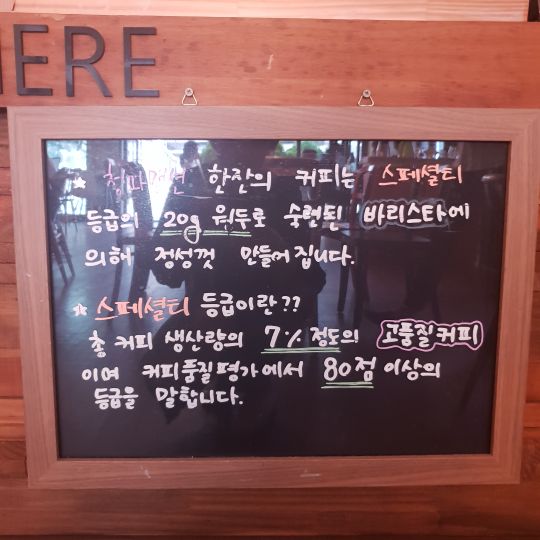 HERE
★ 청파맨션 한잔의 커피는 스페셜티
등급의 20g 원두로 숙련된 바리스타에
의해 정성껏 만들어집니다.
★ 스페셜티 등급이란??
총 커피 생산량의 7% 정도의 고품질커피
이며 커피품질평가에서 80점 이상의
등급을 말합니다.